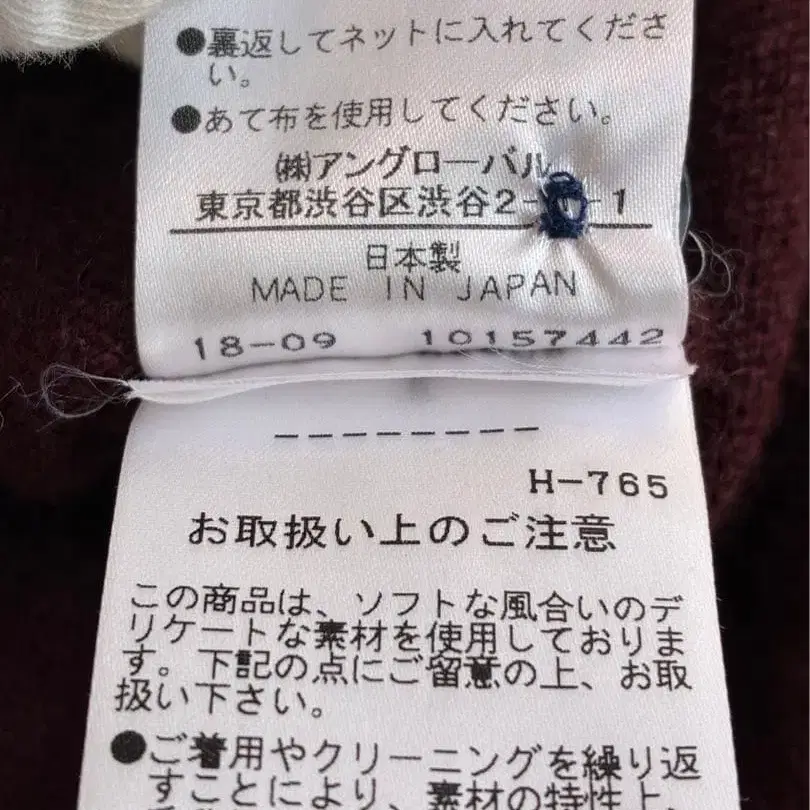 ●裏返してネットに入れてくださ
い。
●あて布を使用してください。
㈱アングローバル
東京都渋谷区渋谷2- -1
日本製
MADE IN JAPAN
18-09 10157442
---------
H-765
お取扱い上のご注意
この商品は、ソフトな風合いのデ
リケートな素材を使用しておりま
す。下記の点にご留意の上、お取
扱い下さい。
●ご着用やクリーニングを繰り返
すことにより、素材の特性上、